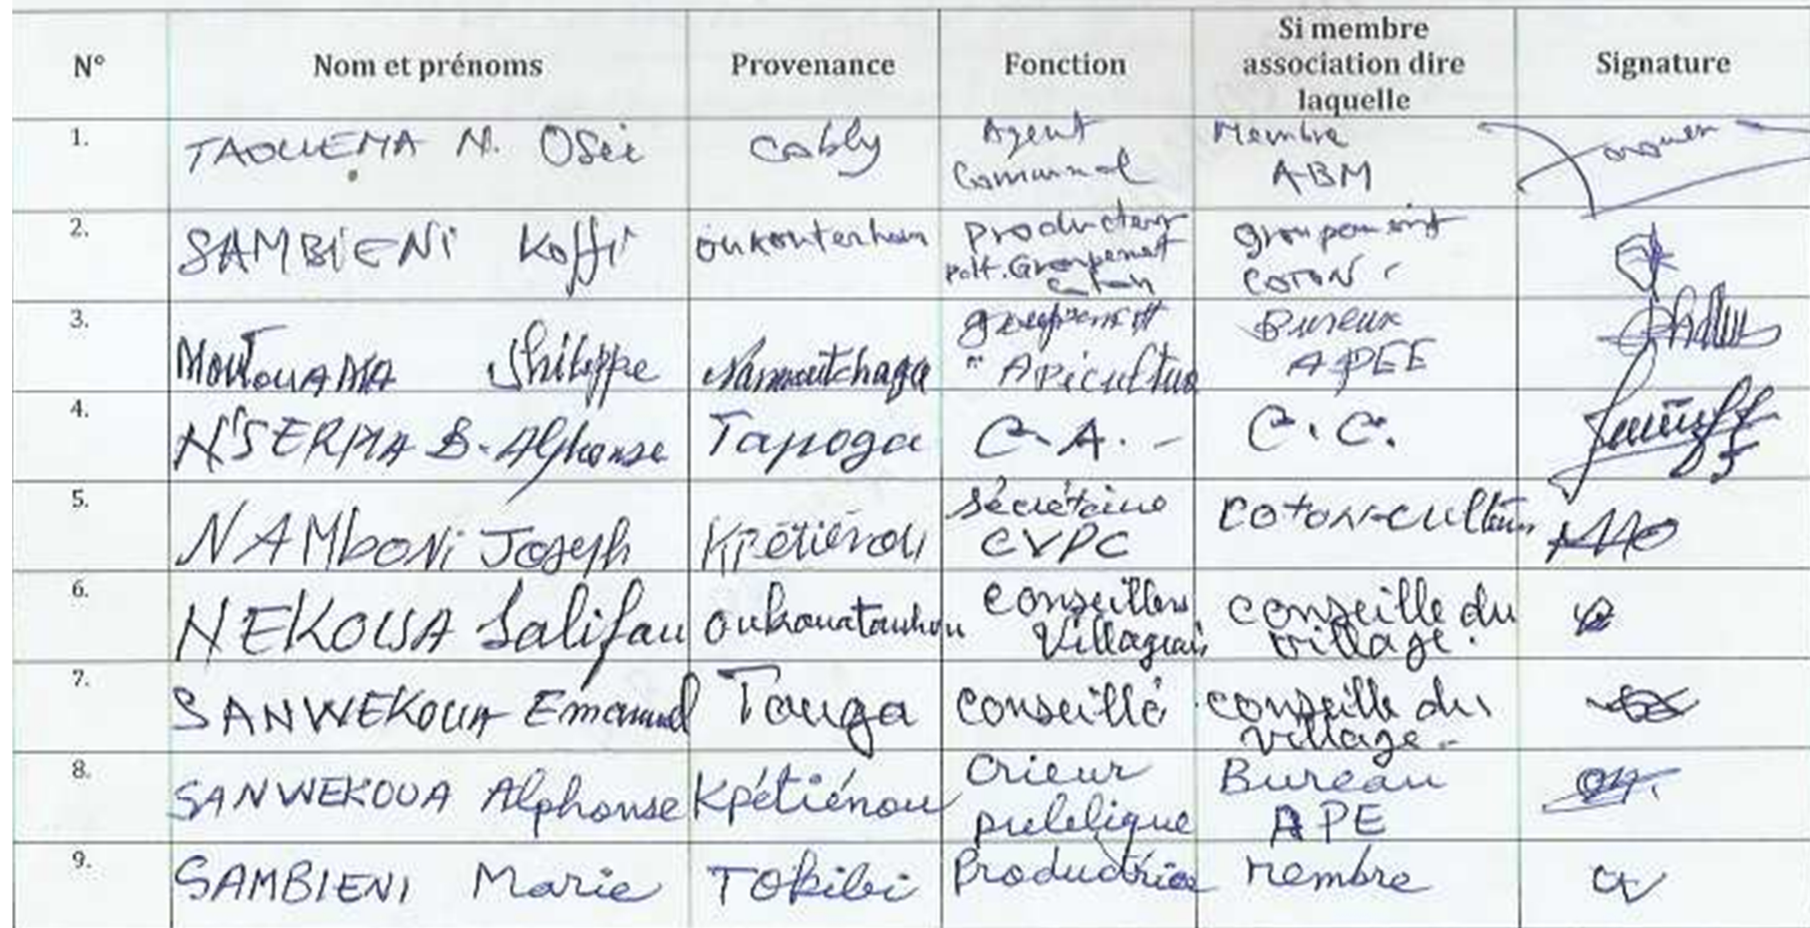 N° Nom et prénoms Provenance Fonction Si membre association dire laquelle Signature
1. TAOUEMA N. Osée Cobly Agent Communal Membre ABM
2. SAMBIENI Koffi oukonterhoun producteur Groupement coton groupement COTON
3. MoutouAMA Philippe Nanmoutchaga groupement " Apiculteur Bureux APEE
4. N'SERMA B. Alphonse Tapoga C.A. - C.C.
5. NAMboNi Joseph Kpétiénou Sécrétaire CVPC COTON-culteur
6. NEKOUA Salifou oukouatouhou Conseillers Villageois conseille du village.
7. SANWEKOUA Emanuel Touga Conseillé conseille du village -
8. SANWEKOUA Alphonse Kpétiénou Crieur publique Bureau APE
9. SAMBIENI Marie TOKibi Productrice Membre